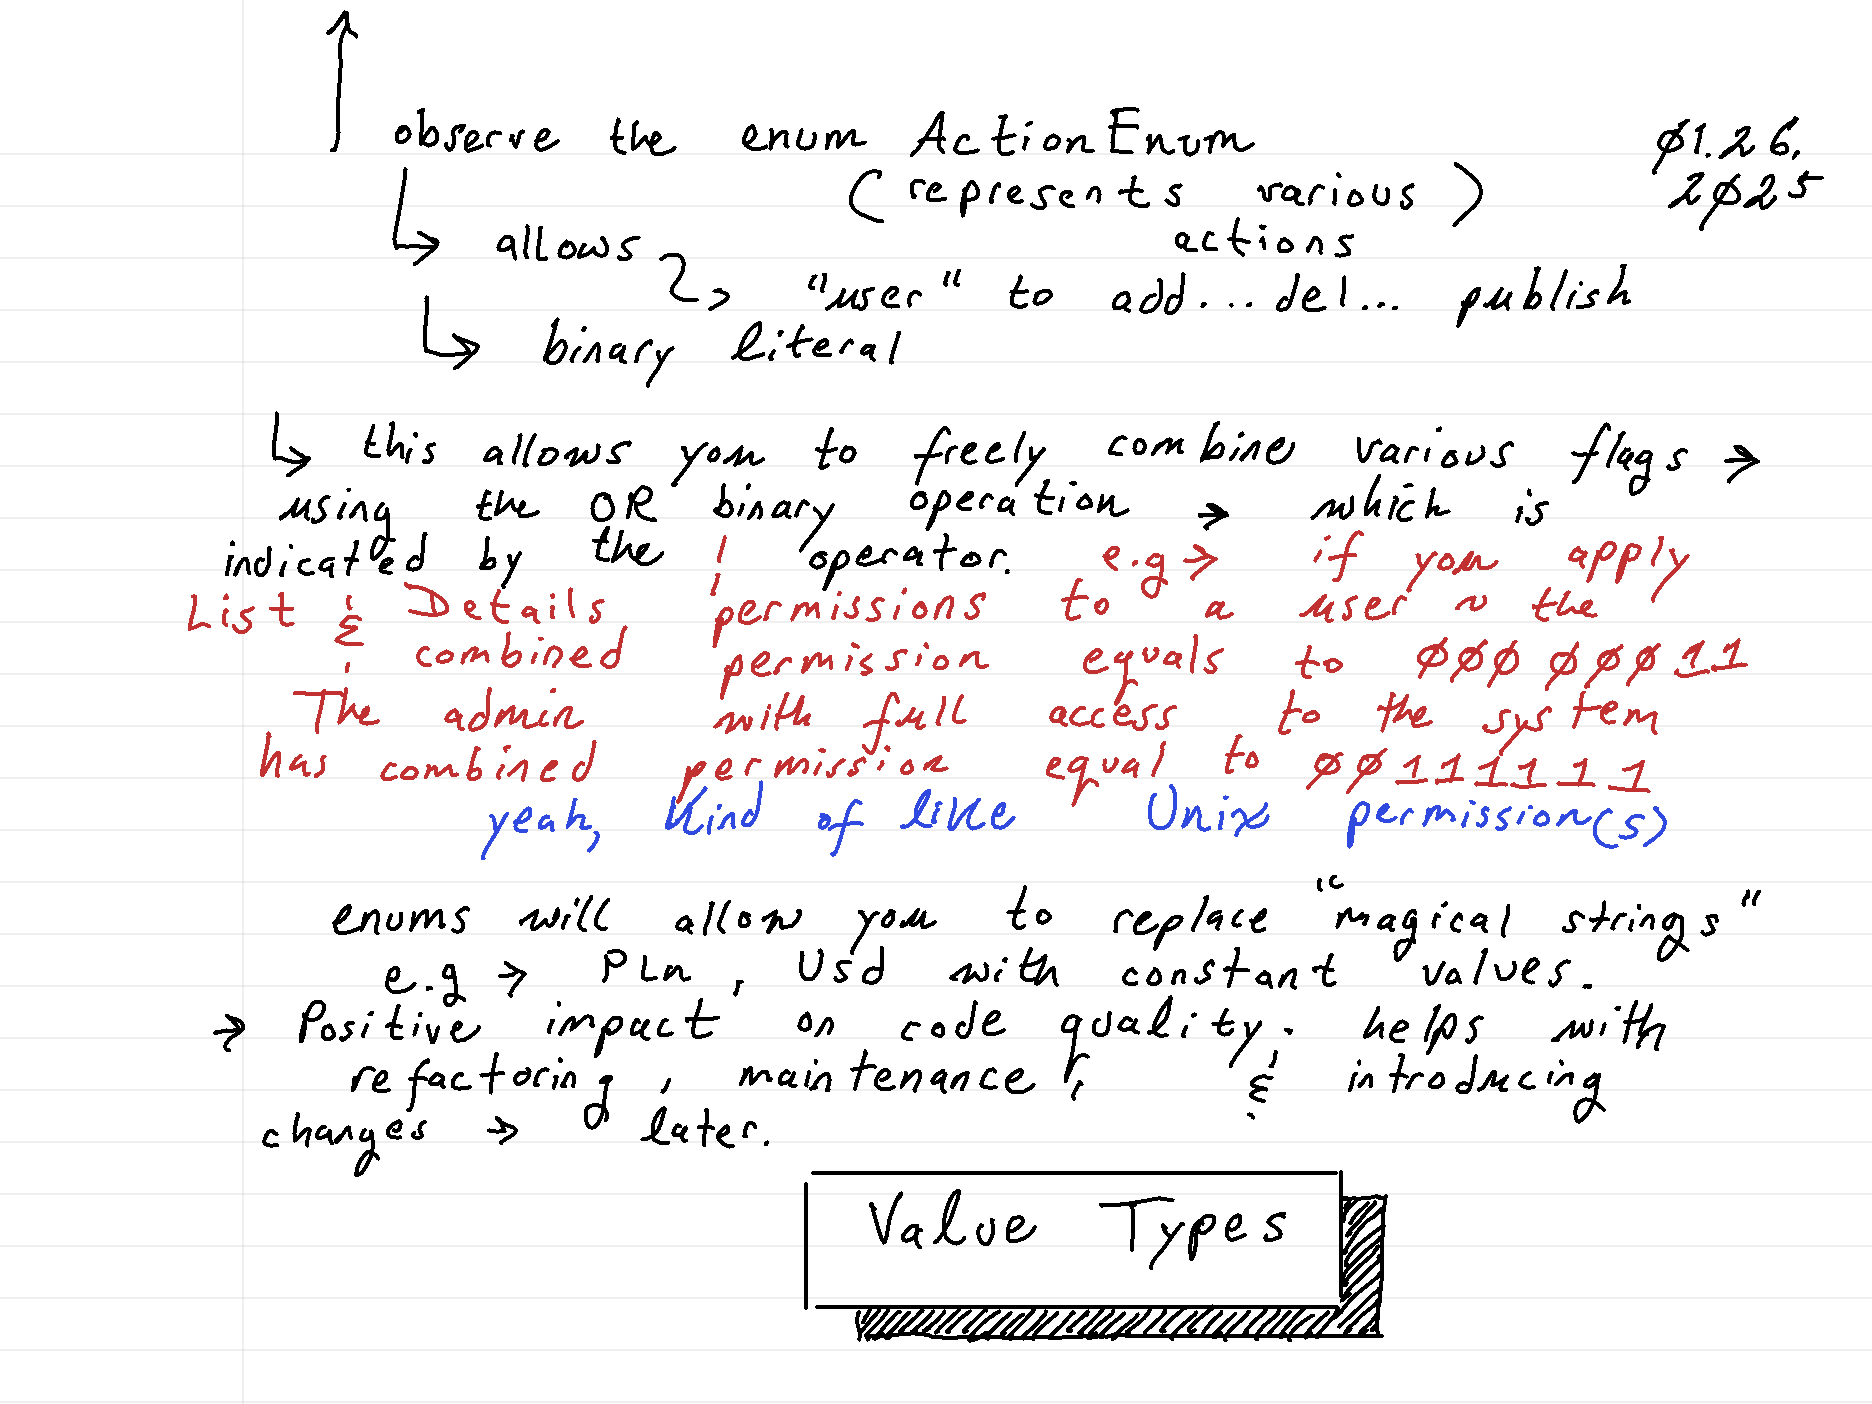 observe the enum ActionEnum
Ø1.26.
2Ø25
(represents various)
actions
allows
"user" to add...del... publish
binary literal
this allows you to freely combine various flags →
using the OR binary operation → which is
indicated by the | operator. e.g → if you apply
List & Details permissions to a user ~ the
combined permission equals to ØØØ ØØØ11
The admin with full access to the system
has combined permission equal to ØØ111111
yeah, kind of like Unix permission(s)
enums will allow you to replace "magical strings"
e.g → PLn, Usd with constant values.
→ Positive impact on code quality. helps with
refactoring, maintenance, & introducing
changes → later.
Value Types